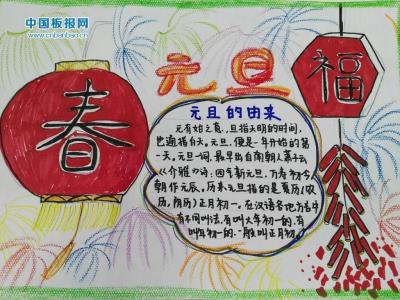 中国板报网
www.cnbanbao.cn
元旦
春
福
元旦的由来
元有始之意，旦指天明的时间，
也通指白天。元旦，便是一年开始的第
一天。元旦一词，最早出自南朝人萧子云
《介雅》诗：四气新元旦，万寿初今
朝作元辰，历来元旦指的是夏历（农
历，阴历）正月初一。在汉语各地方言中
有不同叫法，有叫大年初一的，有
叫初一的，一般叫正月初一